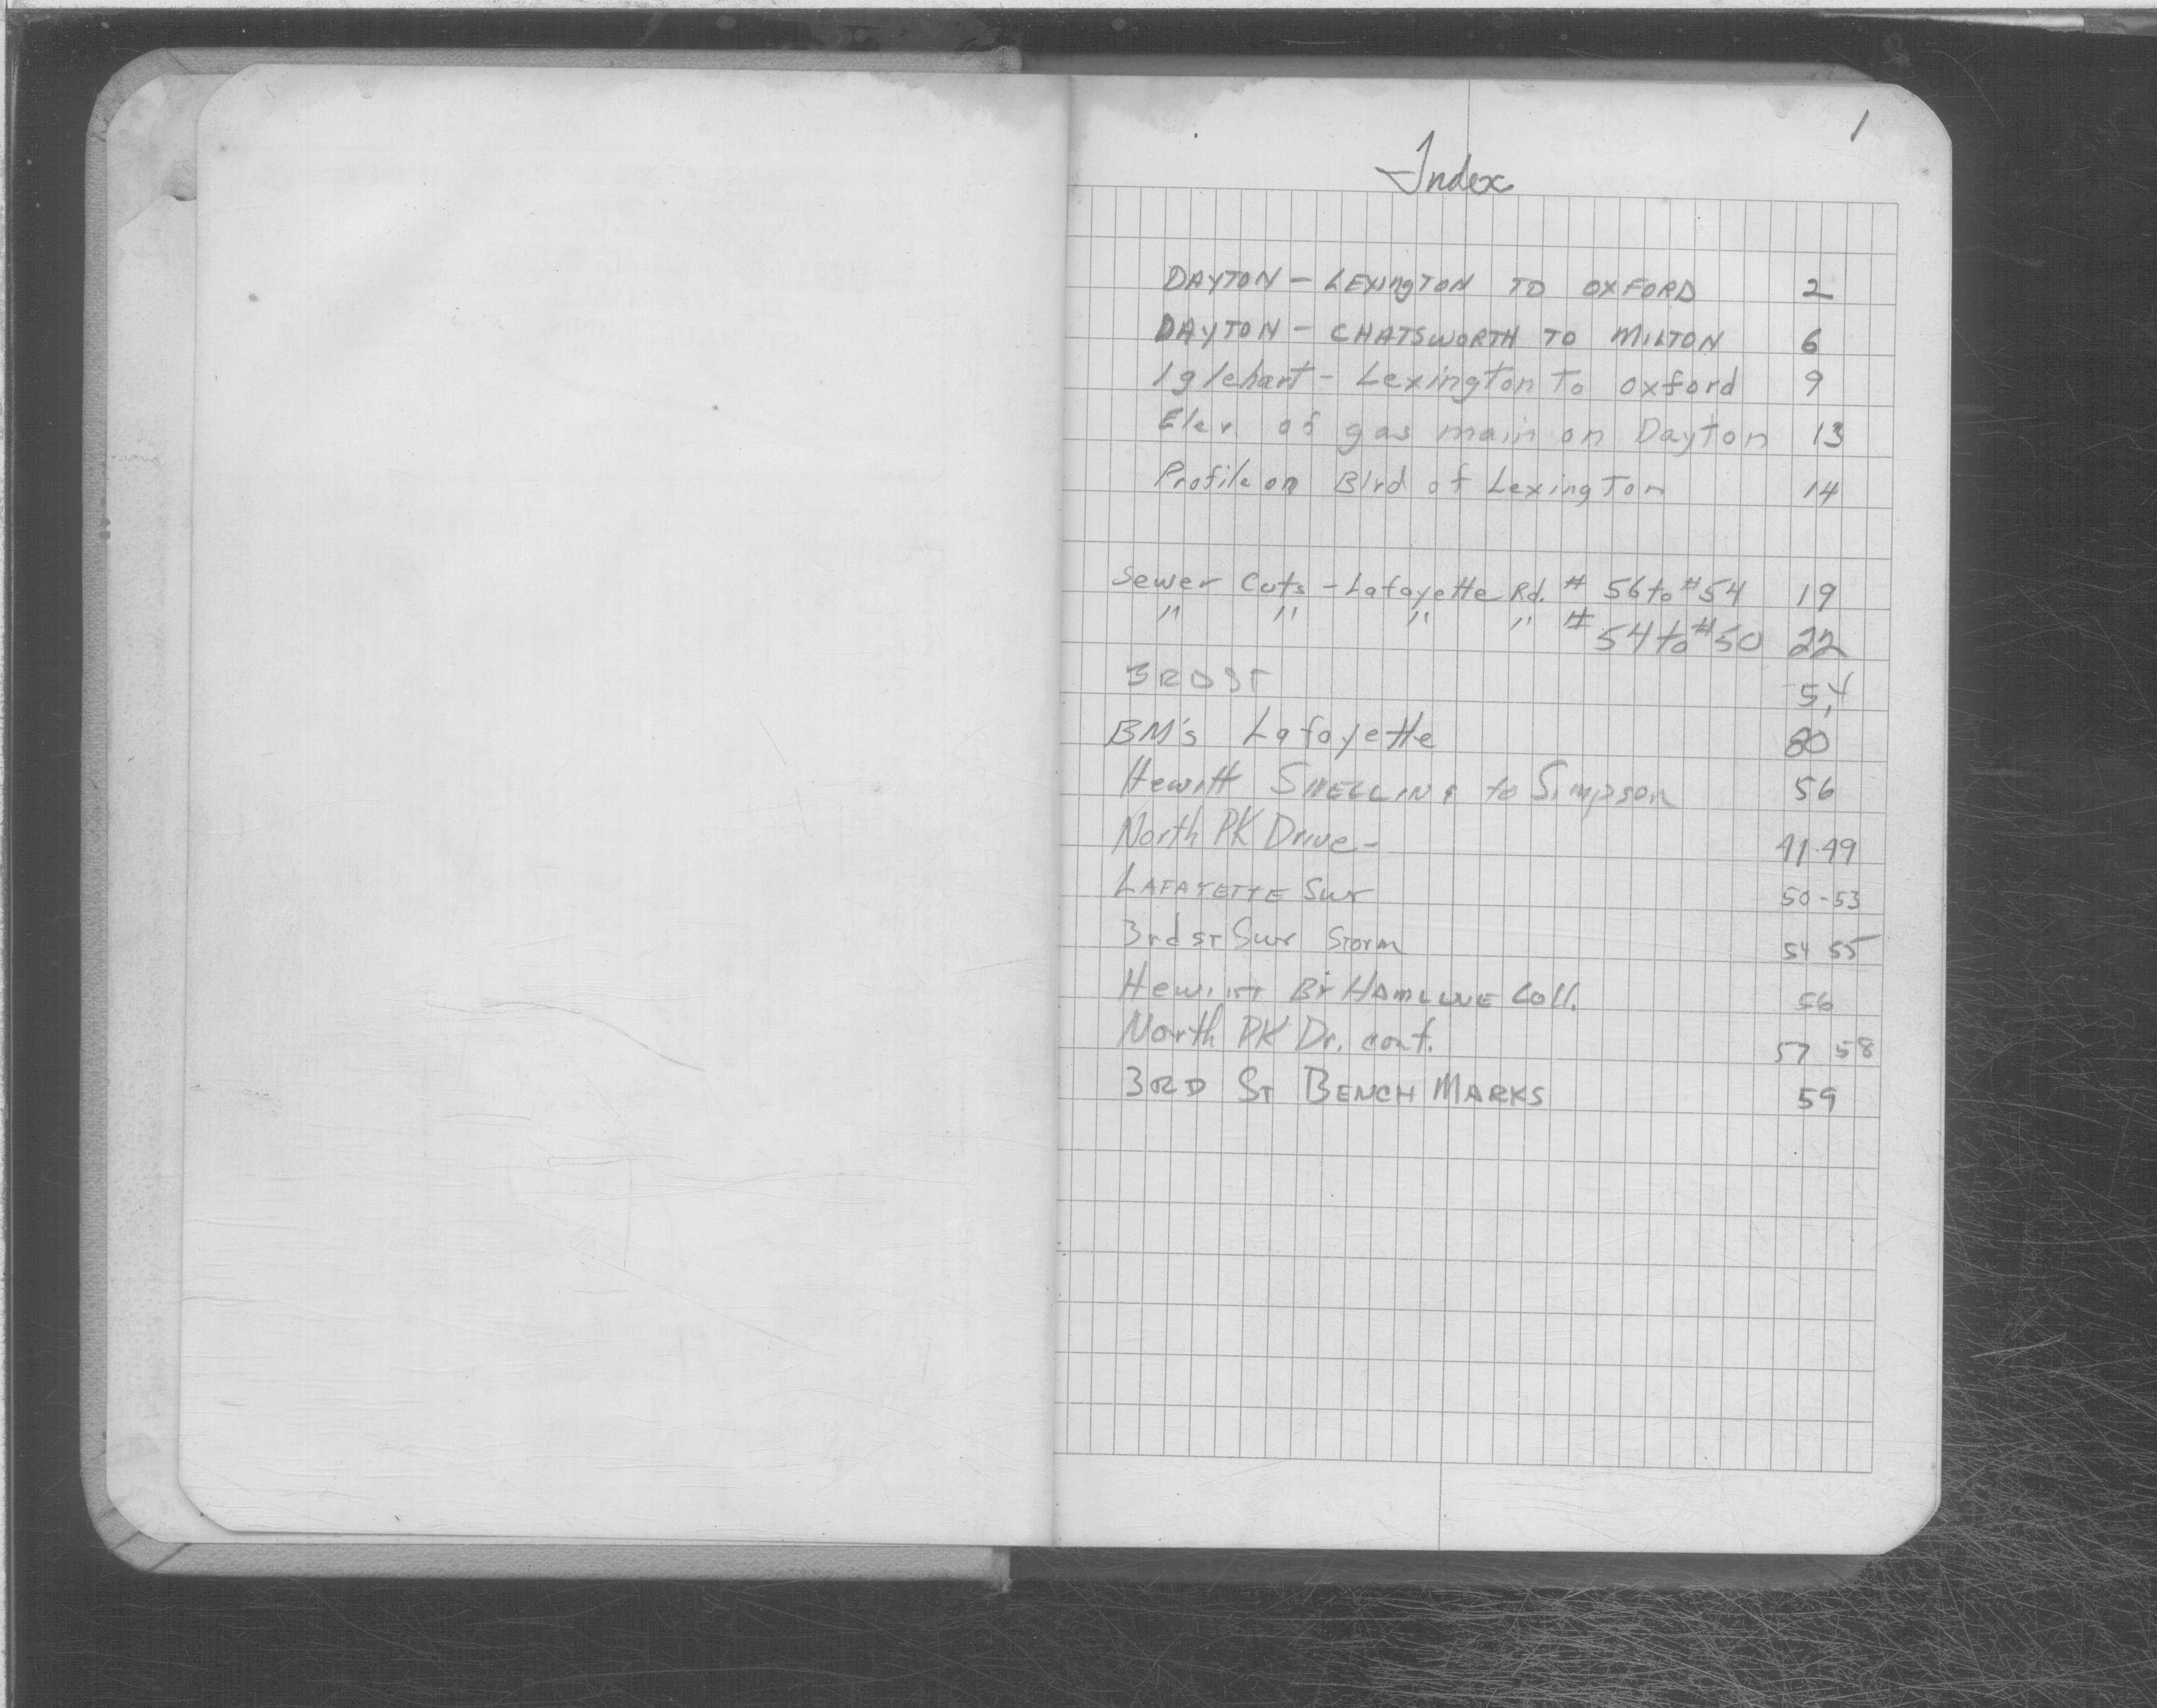 1
Index
DAYTON - LEXINGTON TO OXFORD 2
DAYTON - CHATSWORTH TO MILTON 6
Iglehart - Lexington To oxford 9
Elev. of gas main on Dayton 13
Profile on Blvd of Lexington 14
Sewer Cuts - Lafayette Rd. # 56 to #54 19
" " " " # 54 to #50 22
3RD ST 54
BM's Lafayette 80
Hewitt SNELLING to Simpson 56
North PK Drive - 41-49
LAFAYETTE SWR 50-53
3rd ST SWR STORM 54 55
Hewitt BY HAMLINE Coll. 56
North PK Dr. cont. 57 58
3RD ST BENCH MARKS 59